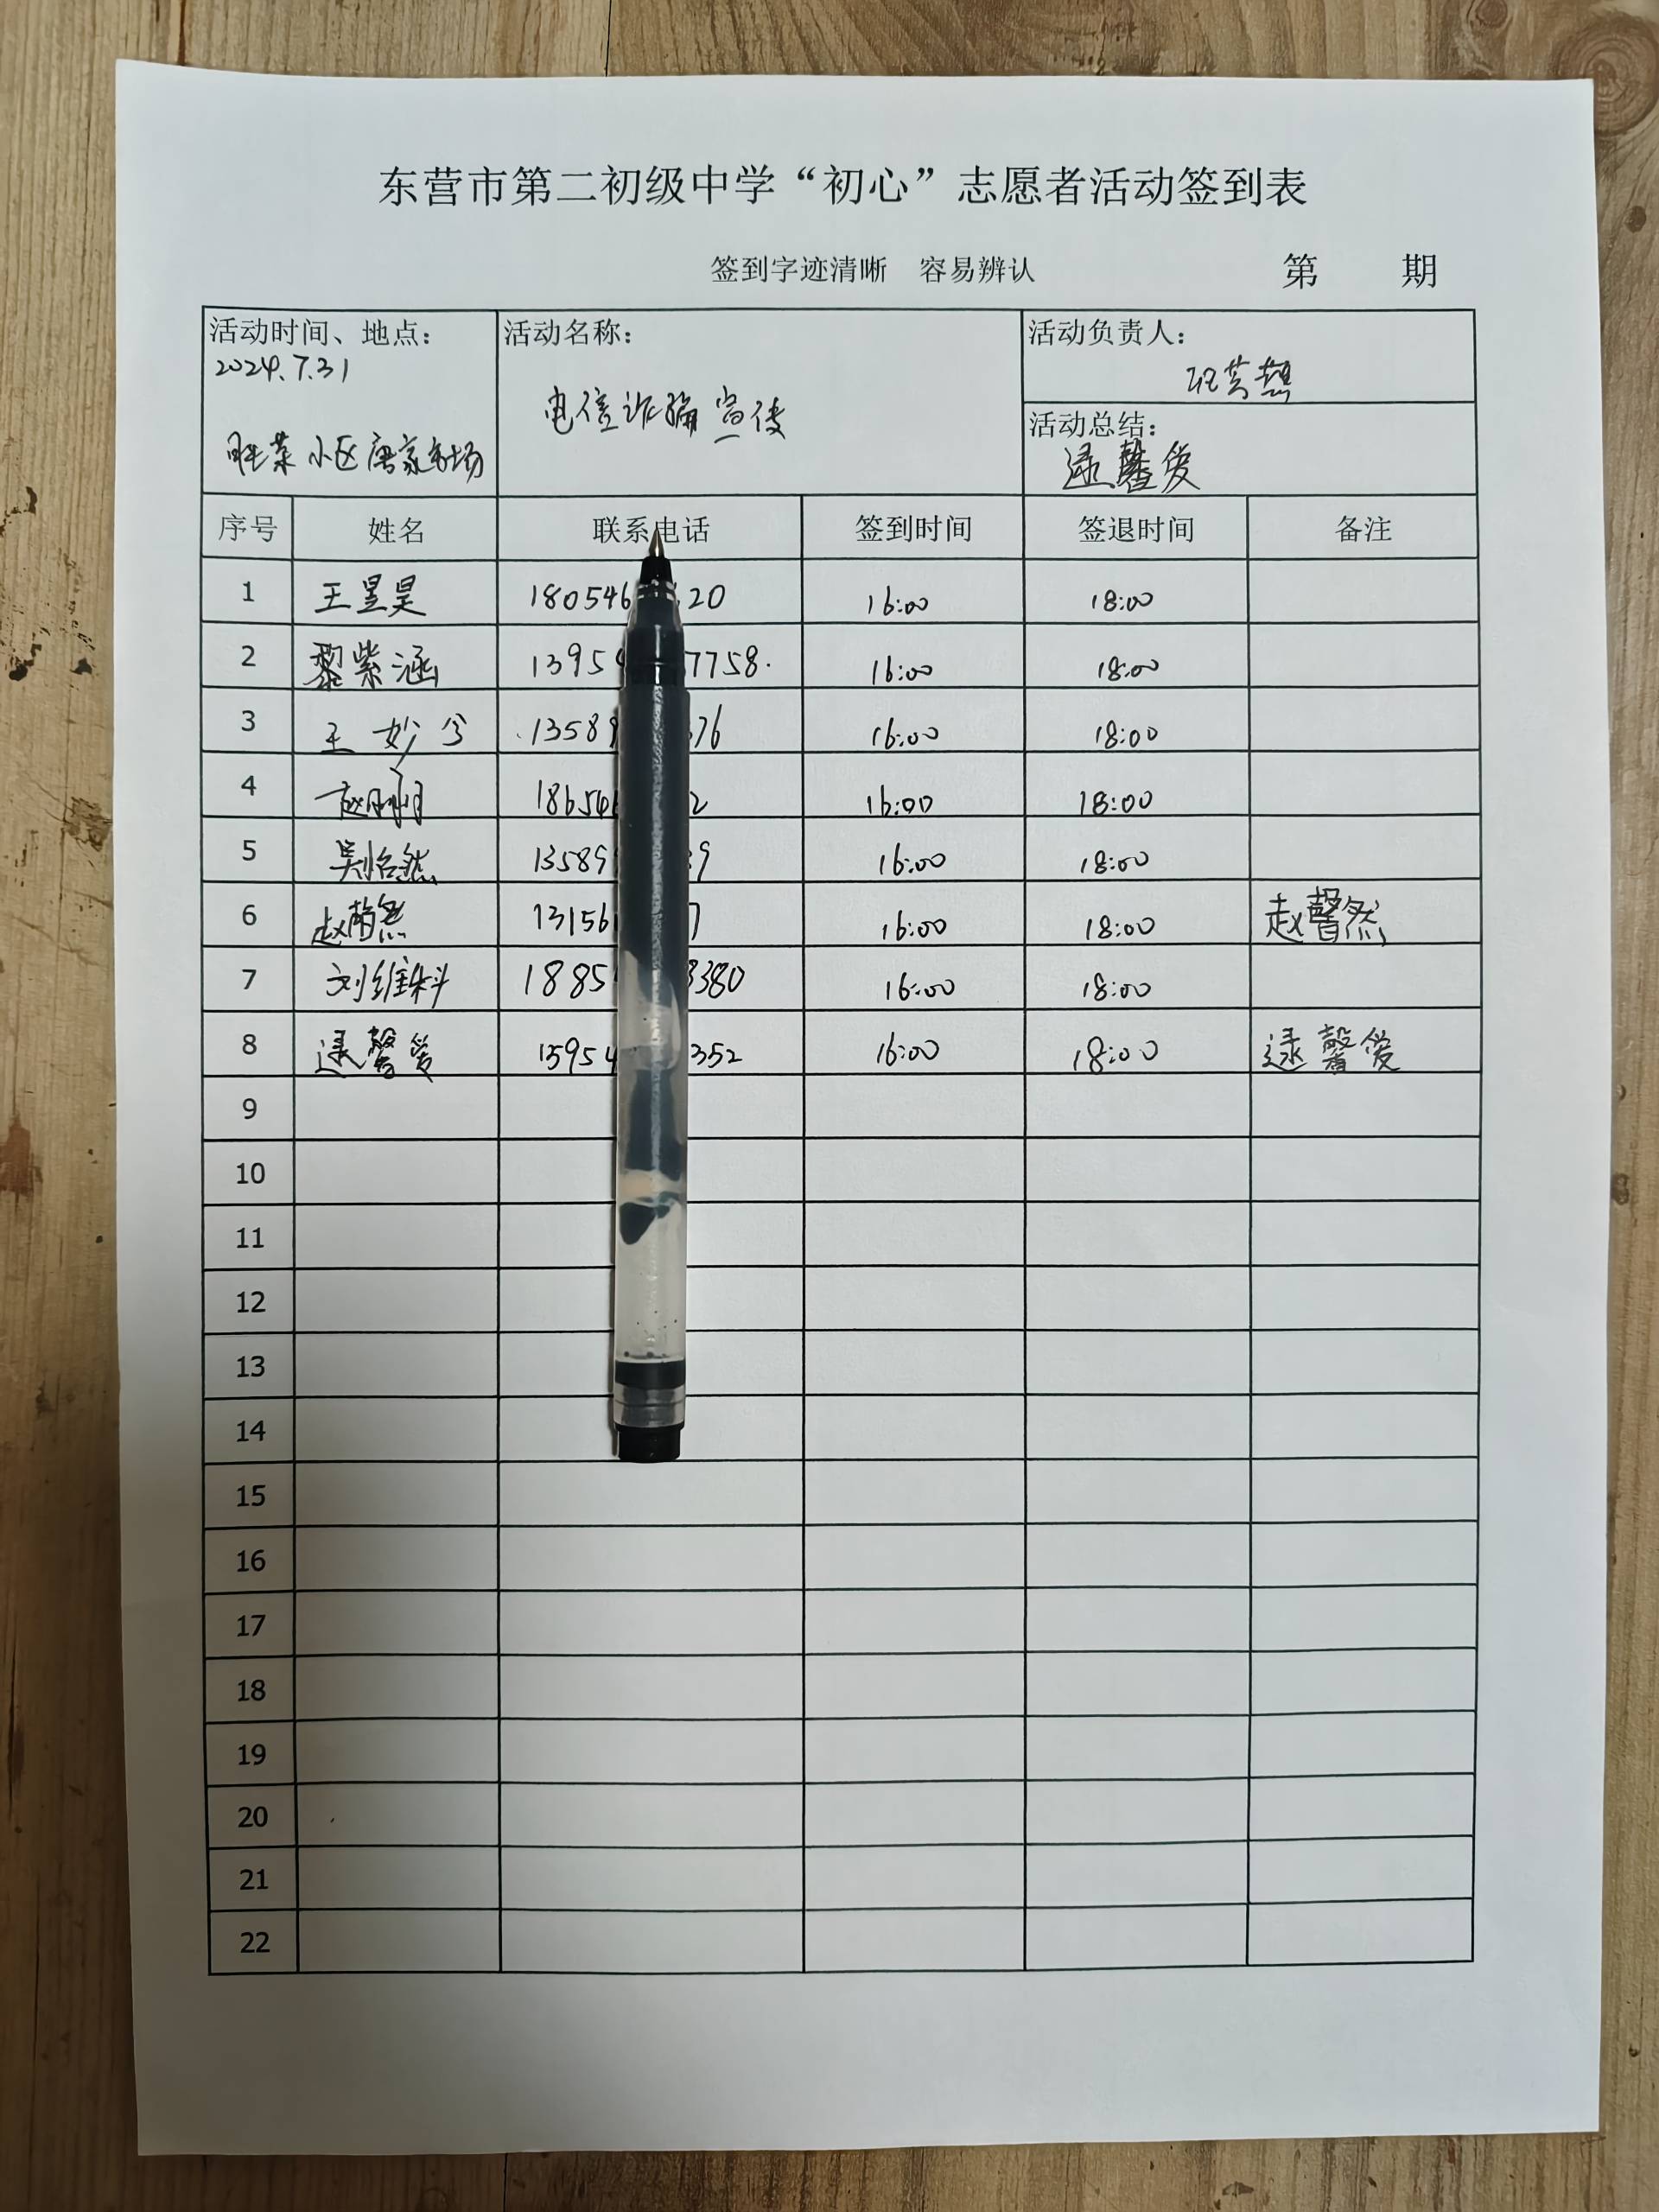 东营市第二初级中学“初心”志愿者活动签到表
签到字迹清晰 容易辨认 第 期
活动时间、地点： 活动名称： 活动负责人：
2024.7.31
电信诈骗宣传
活动总结：
小区唐家市场
逯馨爱
序号 姓名 联系电话 签到时间 签退时间 备注
1 王昱昊 180546 20 16:00 18:00
2 黎紫涵 1395 7758. 16:00 18:00
3 王妙兮 13589 76 16:00 18:00
4 186546 2 16:00 18:00
5 吴怡然 13589 9 16:00 18:00
6 赵馨然 13156 7 16:00 18:00 赵馨然
7 刘维科 1885 3380 16:00 18:00
8 逯馨爱 15954 352 16:00 18:00 逯馨爱
9
10
11
12
13
14
15
16
17
18
19
20
21
22